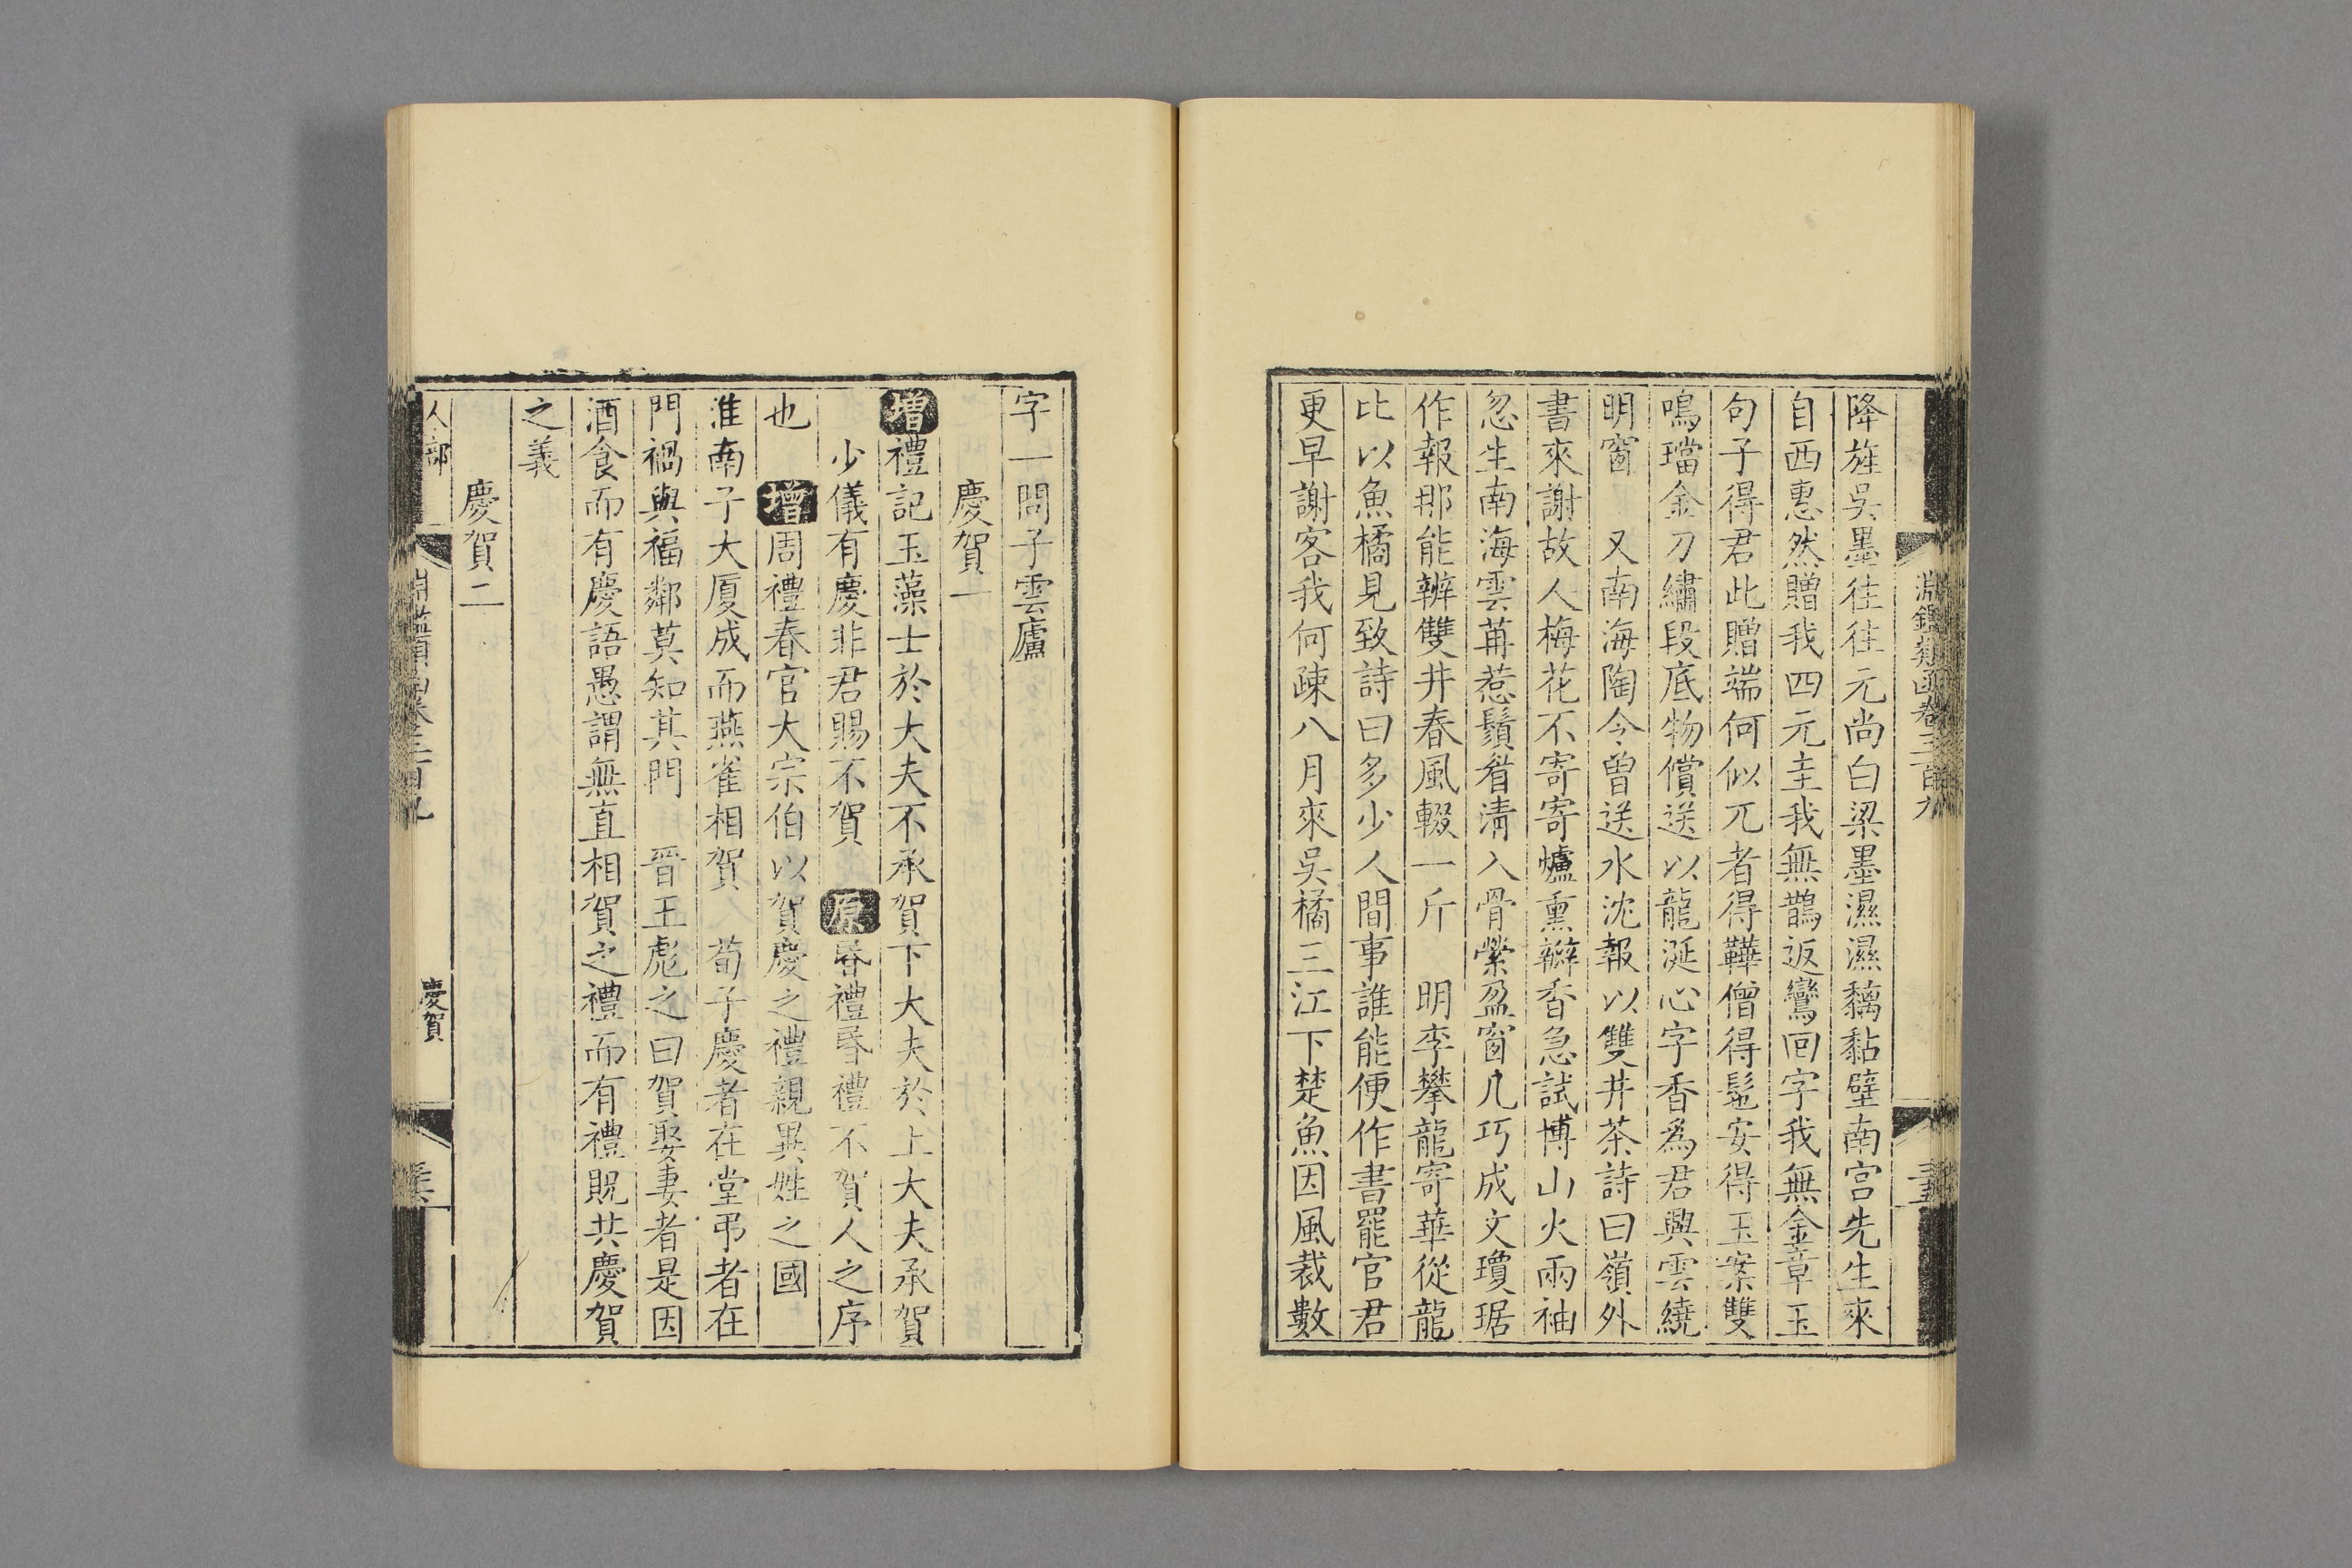 淵鑑類函卷三百九
降旌吳墨往往元尚白梁墨濕濕黐黏壁南宮先生來
自西惠然贈我四元圭我無鵲返鸞回字我無金章玉
句子得君此贈端何似兀者得鞾僧得髢安得玉案雙
鳴璫金刀繡段底物償送以龍涎心字香爲君興雲繞
明窗 又南海陶令曾送水沈報以雙井茶詩曰嶺外
書來謝故人梅花不寄寄爐熏瓣香急試博山火兩袖
忽生南海雲苒惹鬚眉清入骨縈盈窗几巧成文瓊琚
作報那能辨雙井春風輟一斤 明李攀龍寄華從龍
比以魚橘見致詩曰多少人間事誰能便作書罷官君
更早謝客我何疎八月來吳橘三江下楚魚因風裁數
字一問子雲廬
慶賀一
增禮記玉藻士於大夫不承賀下大夫於上大夫承賀
少儀有慶非君賜不賀 原昏禮昏禮不賀人之序
也 增周禮春官大宗伯以賀慶之禮親異姓之國
淮南子大厦成而燕雀相賀 荀子慶者在堂弔者在
門禍與福鄰莫知其門 晉王彪之曰賀娶妻者是因
酒食而有慶語愚謂無直相賀之禮而有禮貺共慶賀
之義
慶賀二
人部
慶賀